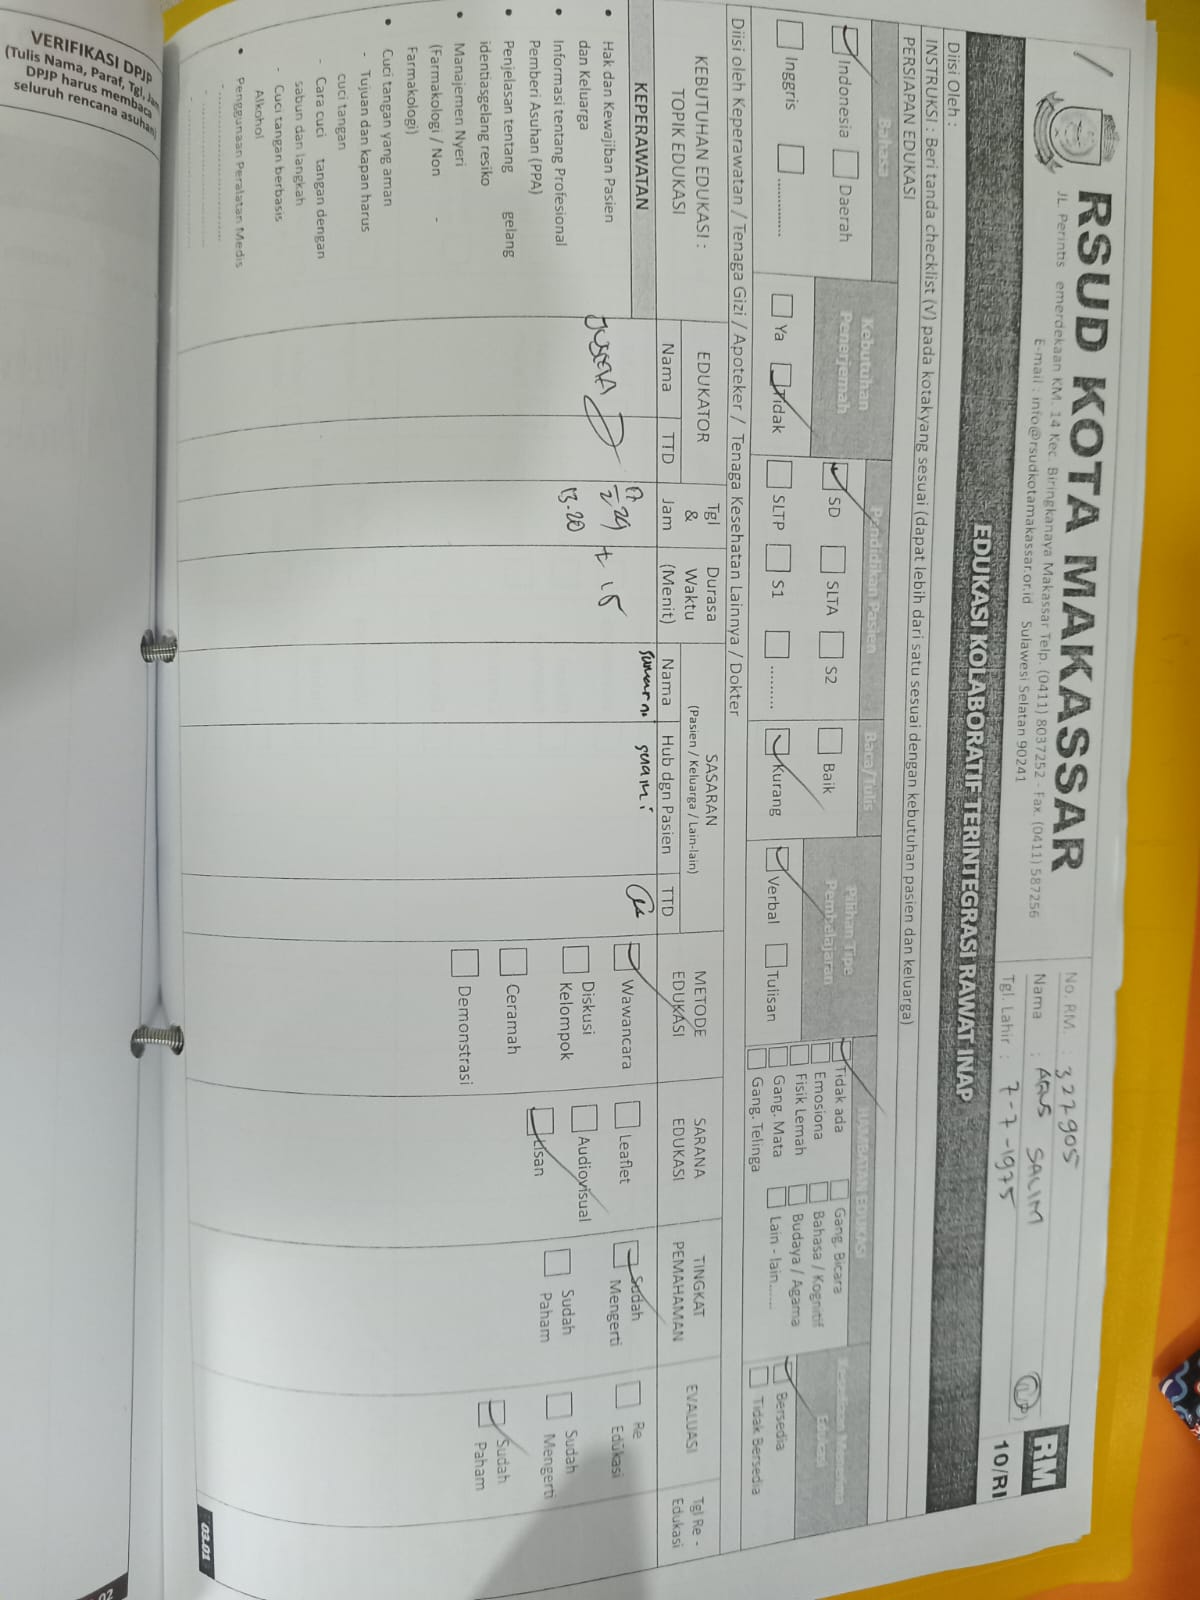 RSUD KOTA MAKASSAR
JL. Perintis emerdekaan KM. 14 Kec. Biringkanaya Makassar Telp. (0411) 8037252 - Fax. (0411) 587256
E-mail : info@rsudkotamakassar.or.id Sulawesi Selatan 90241
No. RM. : 327905
Nama : AGUS SALIM
Tgl. Lahir : 7-7-1975
RM
10/RI
EDUKASI KOLABORATIF TERINTEGRASI RAWAT INAP
Diisi Oleh :
INSTRUKSI : Beri tanda checklist (√) pada kotakyang sesuai (dapat lebih dari satu sesuai dengan kebutuhan pasien dan keluarga)
PERSIAPAN EDUKASI
Bahasa
Indonesia
Daerah
Inggris
..............
Kebutuhan
Penerjemah
Ya
Tidak
Pendidikan Pasien
SD
SLTA
S2
SLTP
S1
.........
Baca/Tulis
Baik
Kurang
Pilihan Tipe
Pembelajaran
Verbal
Tulisan
HAMBATAN EDUKASI
Tidak ada
Gang. Bicara
Emosiona
Bahasa / Kognitif
Fisik Lemah
Budaya / Agama
Gang. Mata
Lain - lain.......
Gang. Telinga
Edukasi
Bersedia
Tidak Bersedia
Diisi oleh Keperawatan / Tenaga Gizi / Apoteker / Tenaga Kesehatan Lainnya / Dokter
KEBUTUHAN EDUKASI :
TOPIK EDUKASI
EDUKATOR
Nama
TTD
Tgl
&
Jam
Durasa
Waktu
(Menit)
SASARAN
(Pasien / Keluarga / Lain-lain)
Nama
Hub dgn Pasien
TTD
METODE
EDUKASI
SARANA
EDUKASI
TINGKAT
PEMAHAMAN
EVALUASI
Tgl Re -
Edukasi
KEPERAWATAN
• Hak dan Kewajiban Pasien
dan Keluarga
• Informasi tentang Profesional
Pemberi Asuhan (PPA)
• Penjelasan tentang gelang
identiasgelang resiko
• Manajemen Nyeri
(Farmakologi / Non -
Farmakologi)
• Cuci tangan yang aman
- Tujuan dan kapan harus
cuci tangan
- Cara cuci tangan dengan
sabun dan langkah
- Cuci tangan berbasis
Alkohol
• Penggunaan Peralatan Medis
13.20
± 15
Wawancara
Diskusi
Kelompok
Ceramah
Demonstrasi
Leaflet
Audiovisual
Lisan
Sudah
Mengerti
Sudah
Paham
Re
Edukasi
Sudah
Mengerti
Sudah
Paham
03.01
VERIFIKASI DPJP
(Tulis Nama, Paraf, Tgl, Jam
DPJP harus membaca
seluruh rencana asuhan)
02